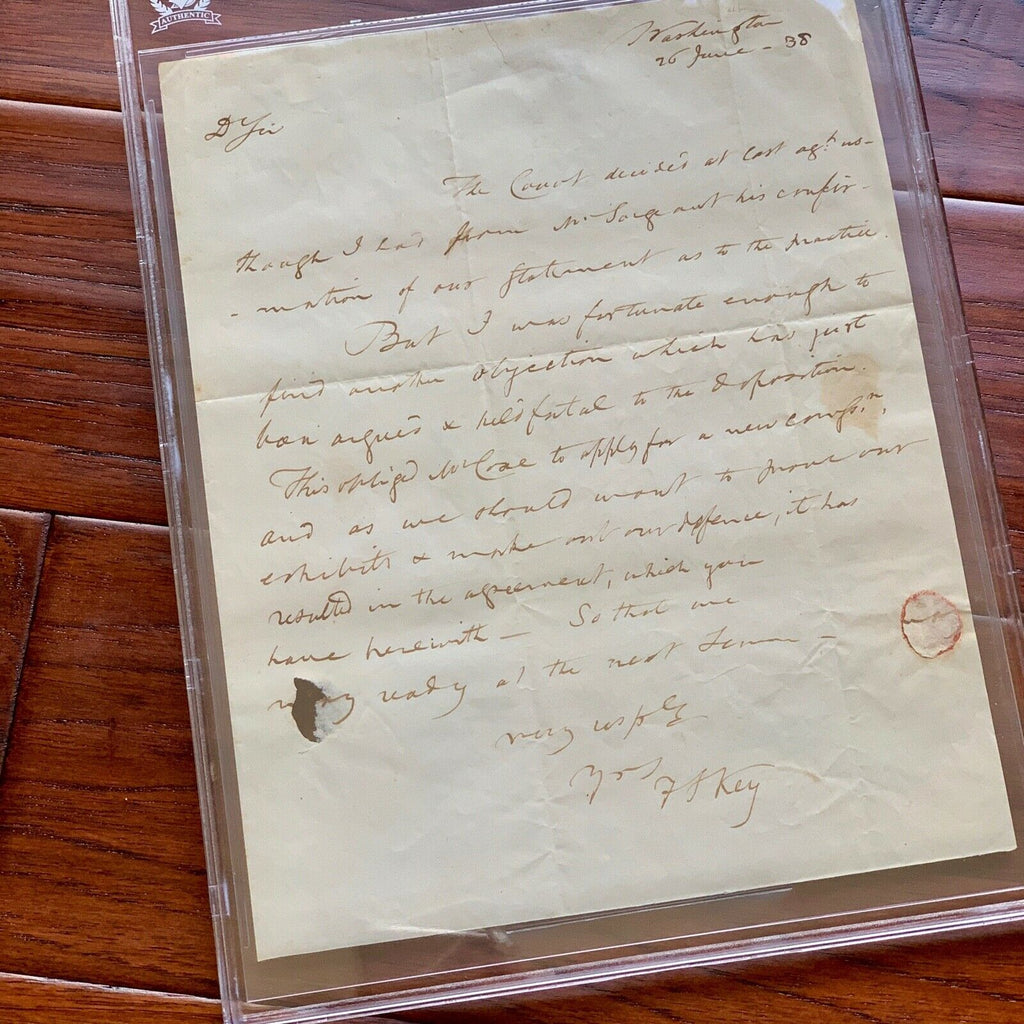 AUTHENTIC
Washington
26 June - 38
Dr Sir
The Court decided at last agt. us -
though I had from Mr Sergeant his confir-
-mation of our statement as to the practice.
But I was fortunate enough to
find another objection which has just
been argued & held fatal to the deposition.
This obliged Mr Coxe to apply for a new
and as we should want to prove our
exhibits & make out our defence, it has
resulted in the agreement, which you
have herewith - So that we
may ready at the next Term -
very respy
Yrs F S Key